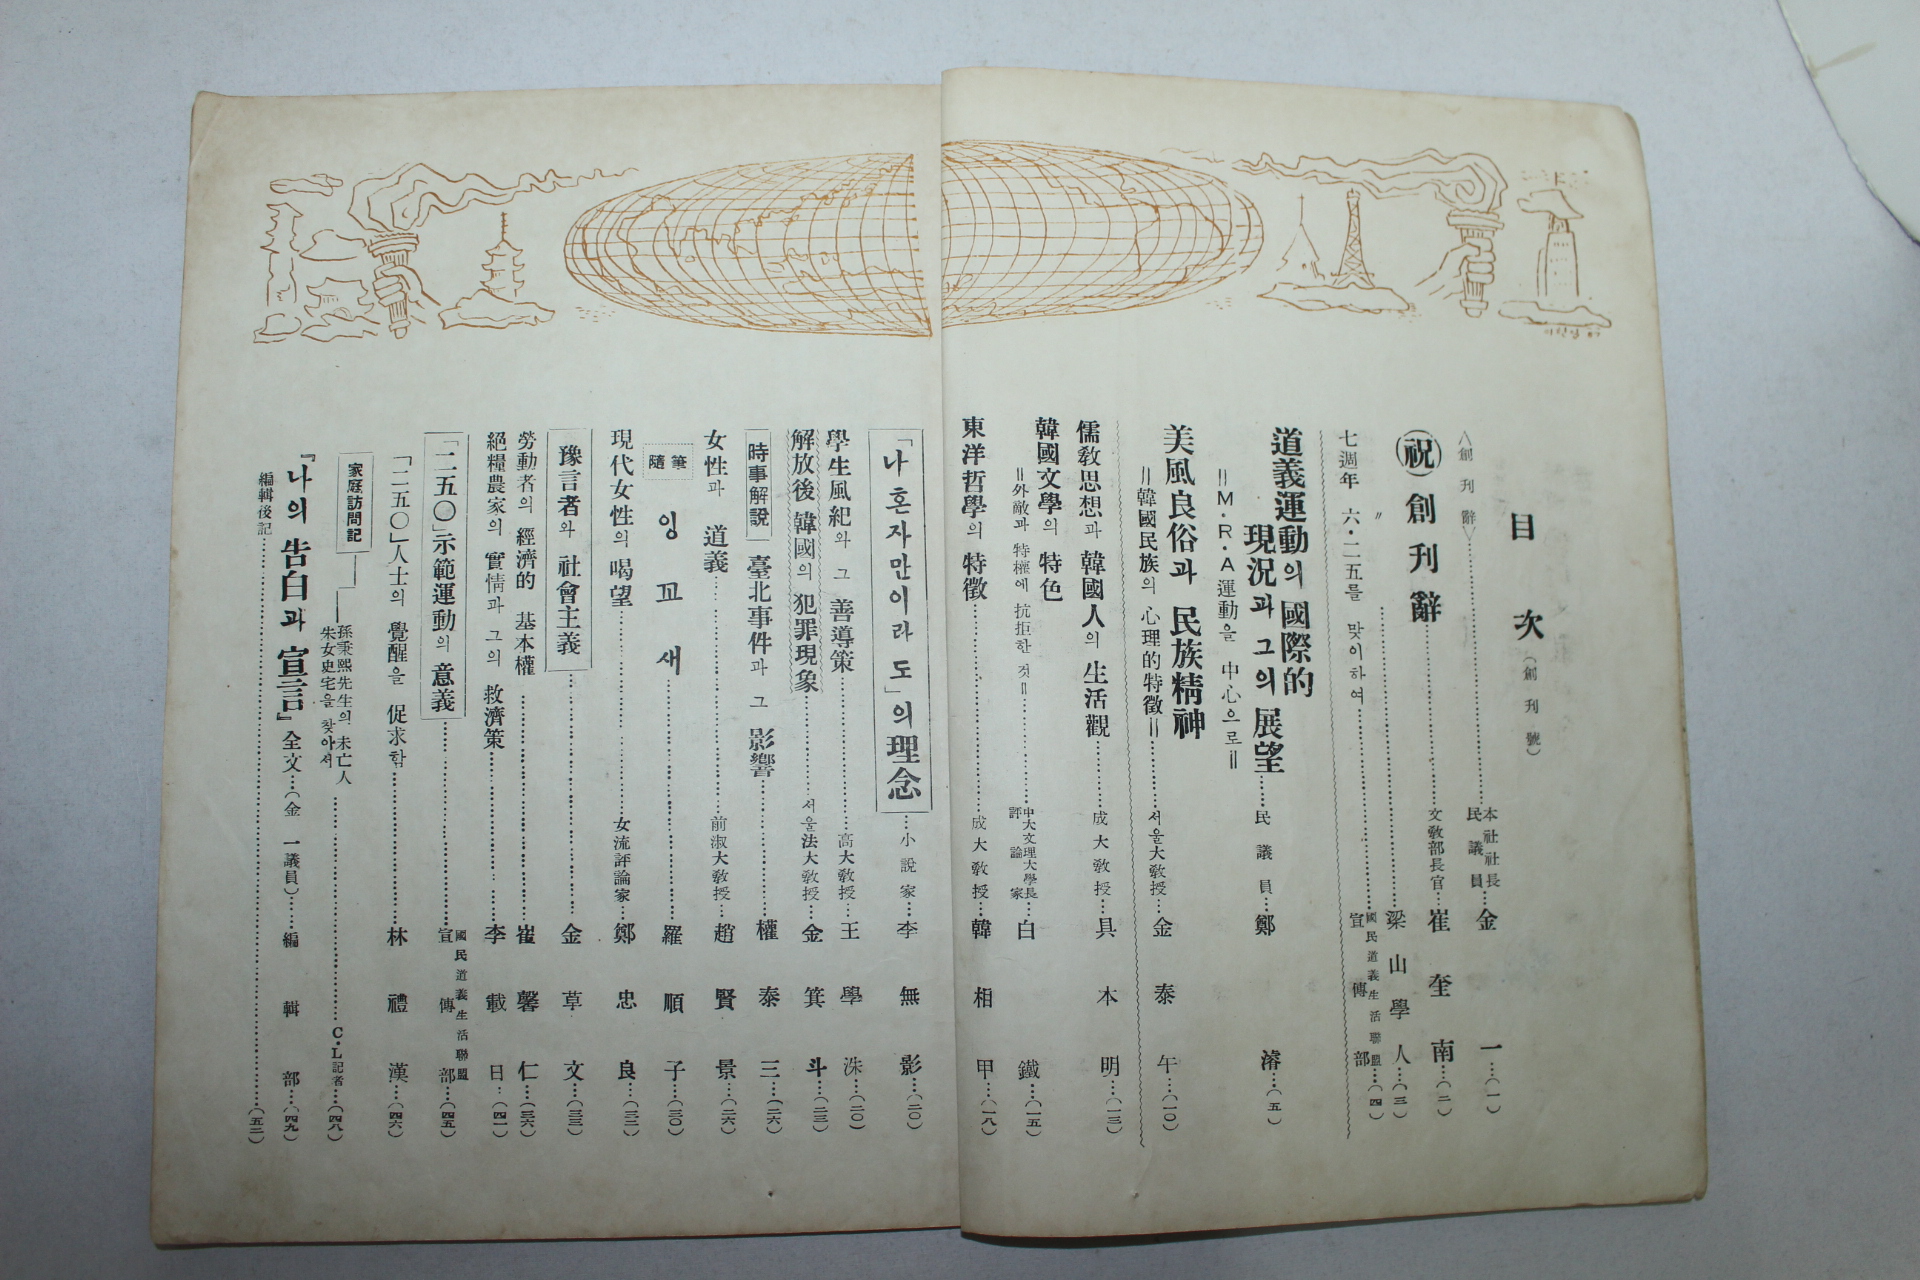 目次 (創刊號)
<創刊辭>……本社社長 民議員…金 一…(一)
㊗創刊辭……文敎部長官…崔奎南…(二)
〃……梁山學人…(三)
七週年 六·二五를 맞이하여……國民道義生活聯盟 宣傳部…(四)
道義運動의 國際的
現況과 그의 展望……民議員…鄭濬…(五)
=M·R·A運動을 中心으로=
美風良俗과 民族精神
=韓國民族의 心理的特徵=……서울大敎授…金泰午…(一〇)
儒敎思想과 韓國人의 生活觀……成大敎授…具本明…(一三)
韓國文學의 特色
=外敵과 特權에 抗拒한 것=……中大文理大學長 評論家…白鐵…(一五)
東洋哲學의 特徵……成大敎授…韓相甲…(一八)
「나 혼자만이라도」의 理念…小說家…李無影…(二〇)
學生風紀와 그 善導策……高大敎授…王學洙…(二〇)
解放後 韓國의 犯罪現象……서울法大敎授…金箕斗…(二三)
時事解說 臺北事件과 그 影響……權泰三…(二六)
女性과 道義……前淑大敎授…趙賢景…(二六)
隨筆 잉꼬새……羅順子…(三〇)
現代女性의 喝望……女流評論家…鄭忠良…(三二)
豫言者와 社會主義……金草文…(三三)
勞動者의 經濟的 基本權……崔馨仁…(三六)
絕糧農家의 實情과 그의 救濟策……李載日…(四一)
「二五〇」示範運動의 意義……國民道義生活聯盟 宣傳部…(四五)
「二五〇」人士의 覺醒을 促求함……林禮漢…(四六)
家庭訪問記——孫秉熙先生의 未亡人
朱女史宅을 찾아서……C·L記者…(四八)
『나의 告白과 宣言』全文…(金 一議員)……編輯部…(四九)
編輯後記……(五二)